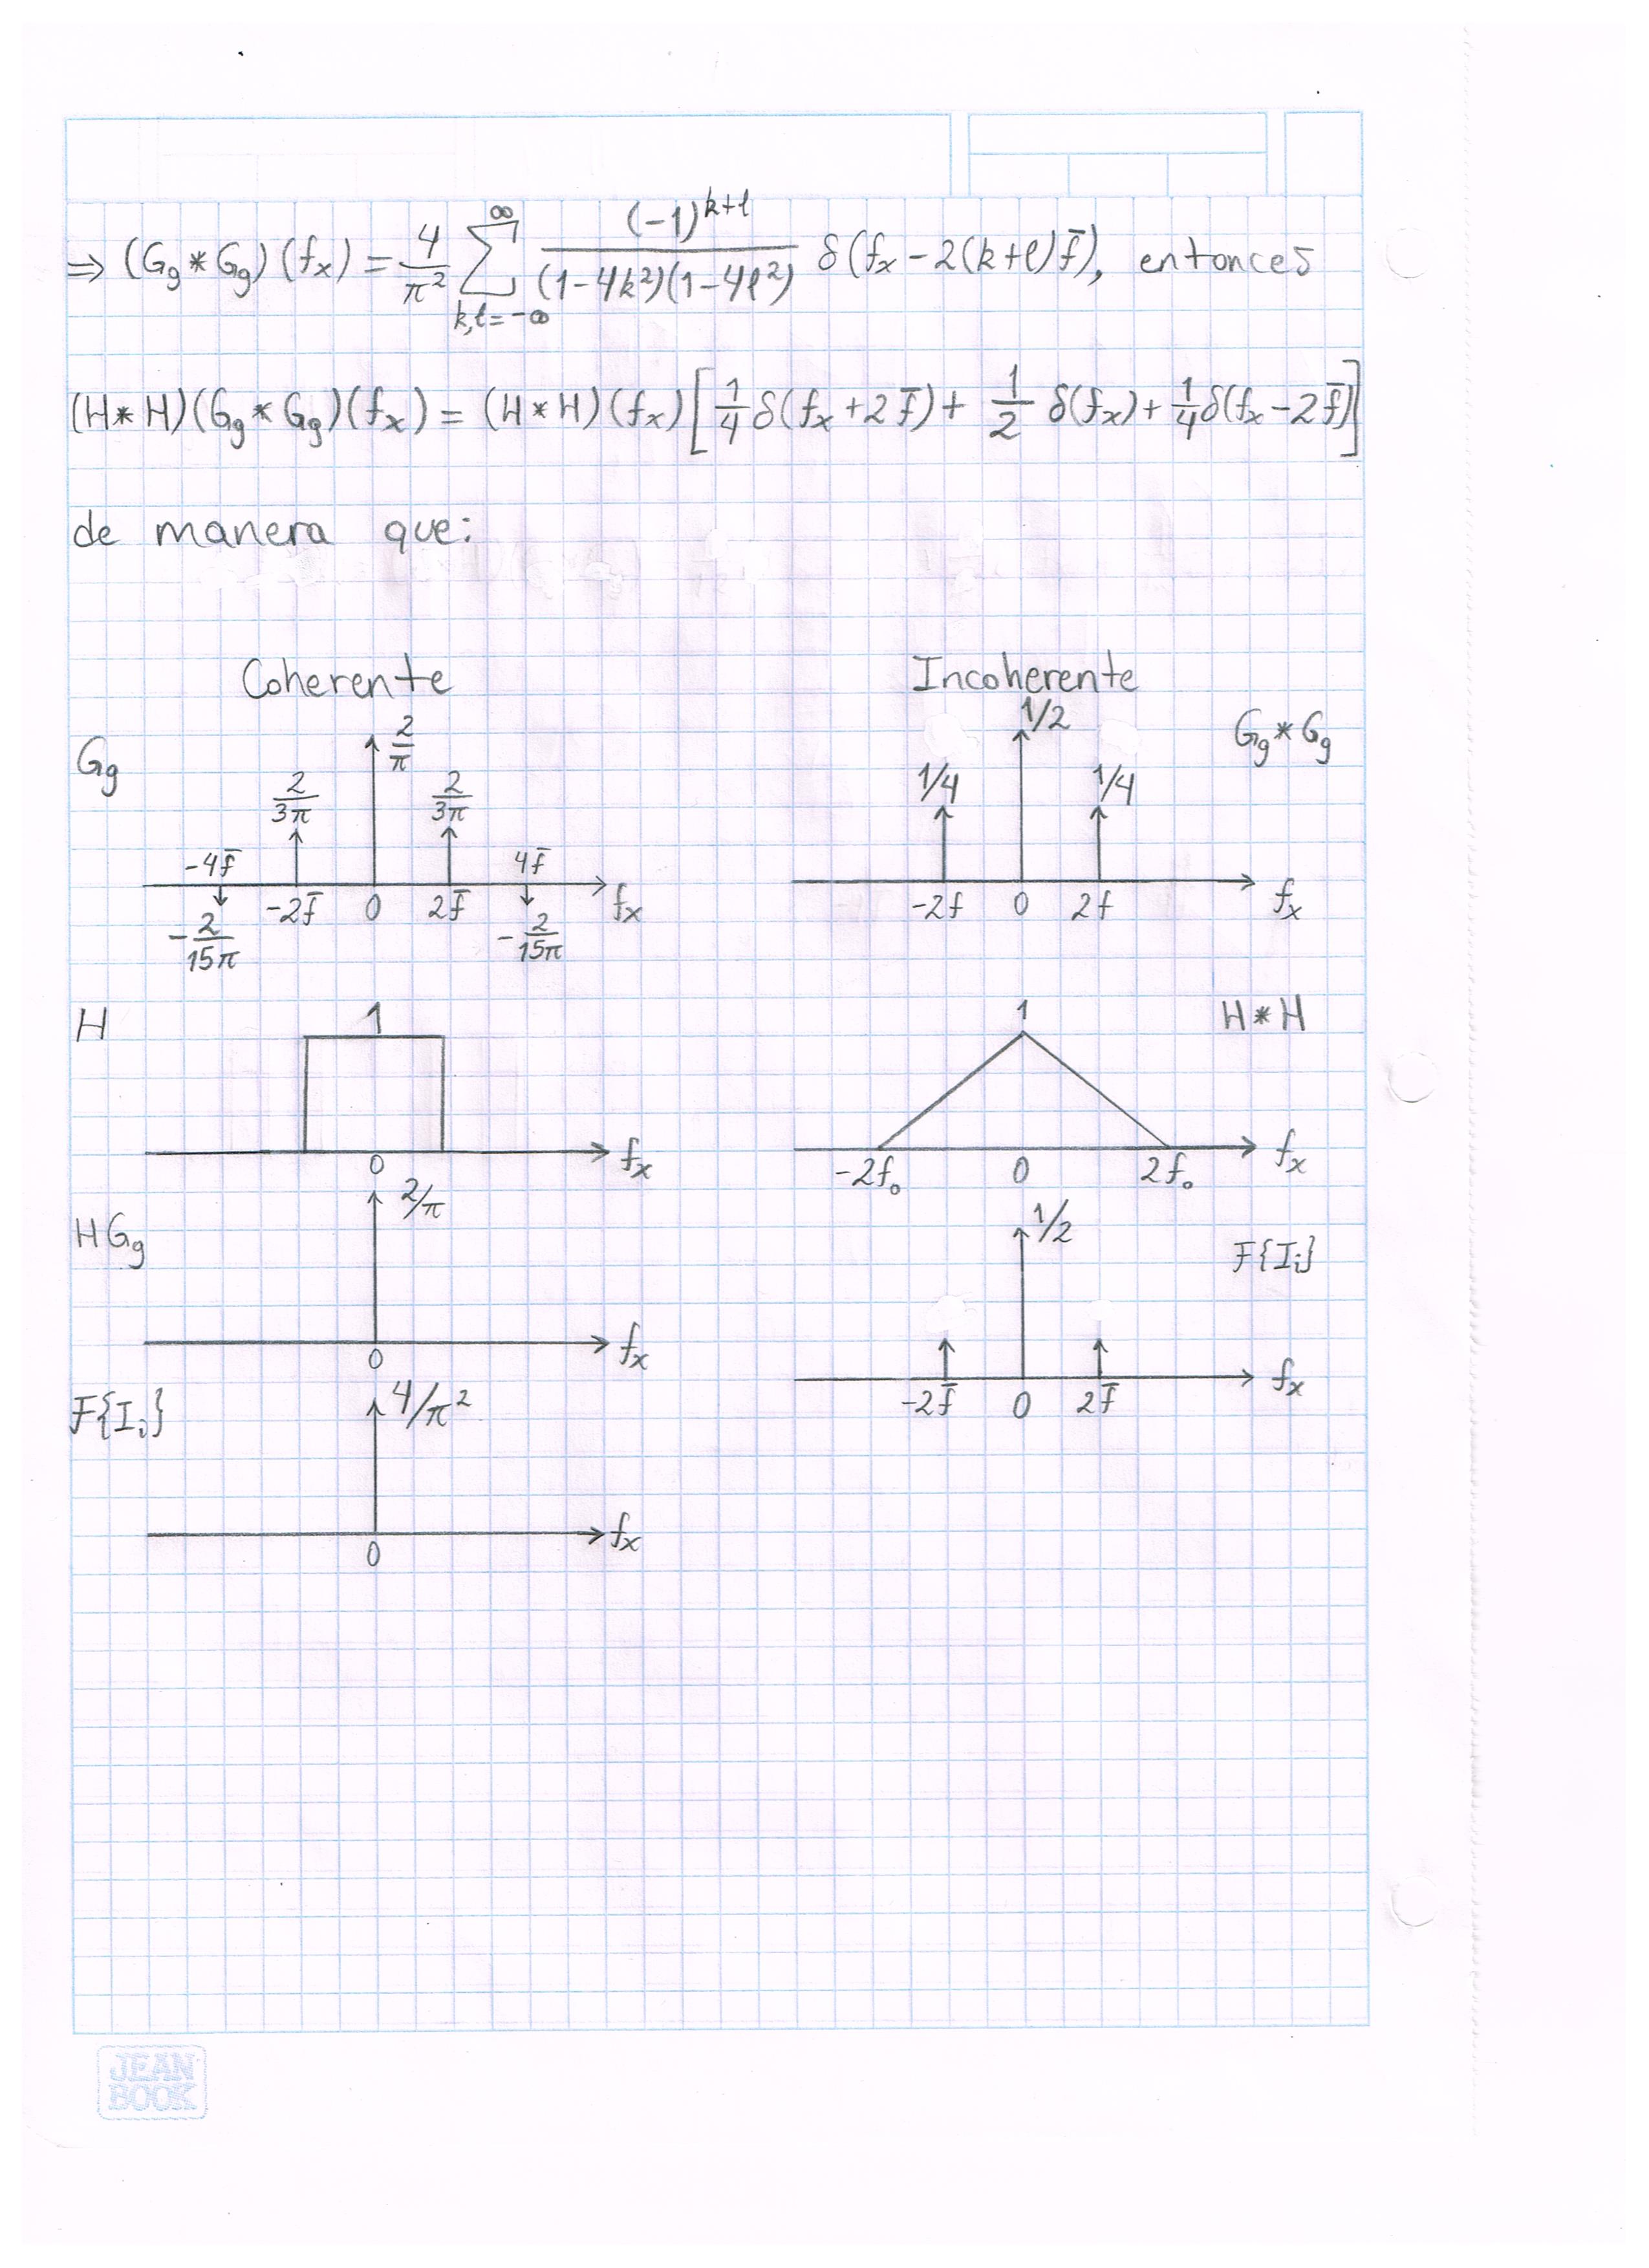 ⇒ (G_g * G_g)(f_x) = 4/π² ∑_{k,l=-∞}^{∞} (-1)^{k+l} / ((1-4k²)(1-4l²)) δ(f_x - 2(k+l)f̄), entonces
(H*H)(G_g * G_g)(f_x) = (H*H)(f_x)[1/4 δ(f_x + 2f̄) + 1/2 δ(f_x) + 1/4 δ(f_x - 2f̄)]
de manera que:
Coherente
G_g
2/π
2/3π 2/3π
-4f̄ 4f̄
-2f̄ 0 2f̄ f_x
-2/15π -2/15π
H
1
0 f_x
HG_g
2/π
0 f_x
F{I_i}
4/π²
0 f_x
Incoherente
1/2 G_g * G_g
1/4 1/4
-2f 0 2f f_x
1 H*H
-2f₀ 0 2f₀ f_x
1/2
F{I_i}
-2f̄ 0 2f̄ f_x
JEAN
BOOK